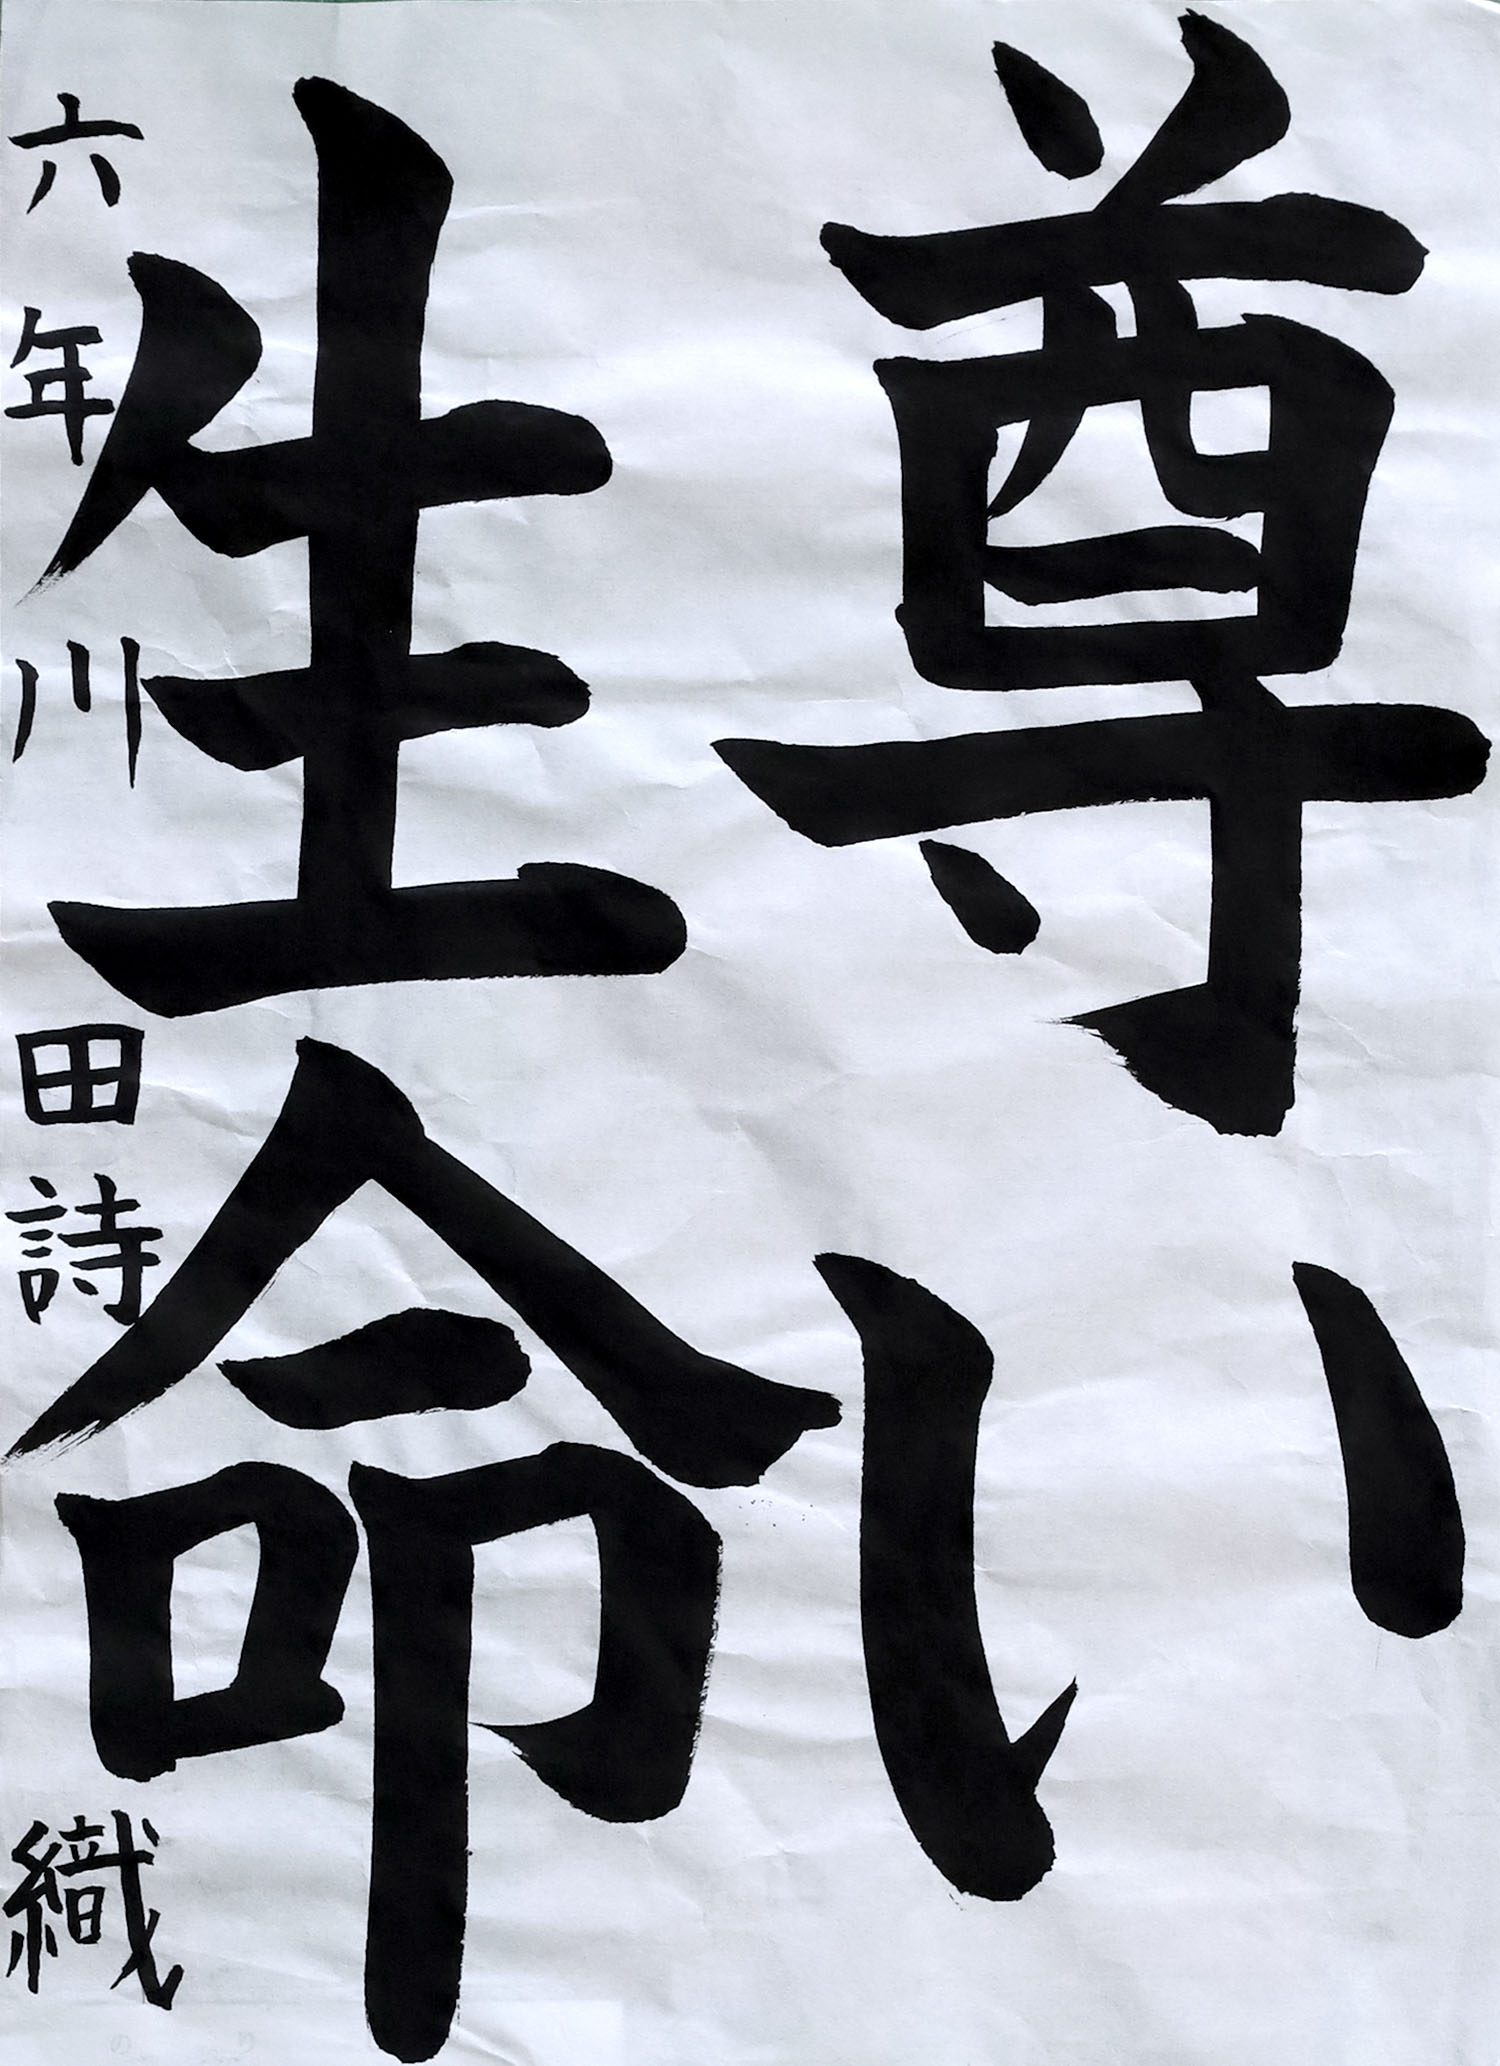 尊い
生命
六年川田詩織